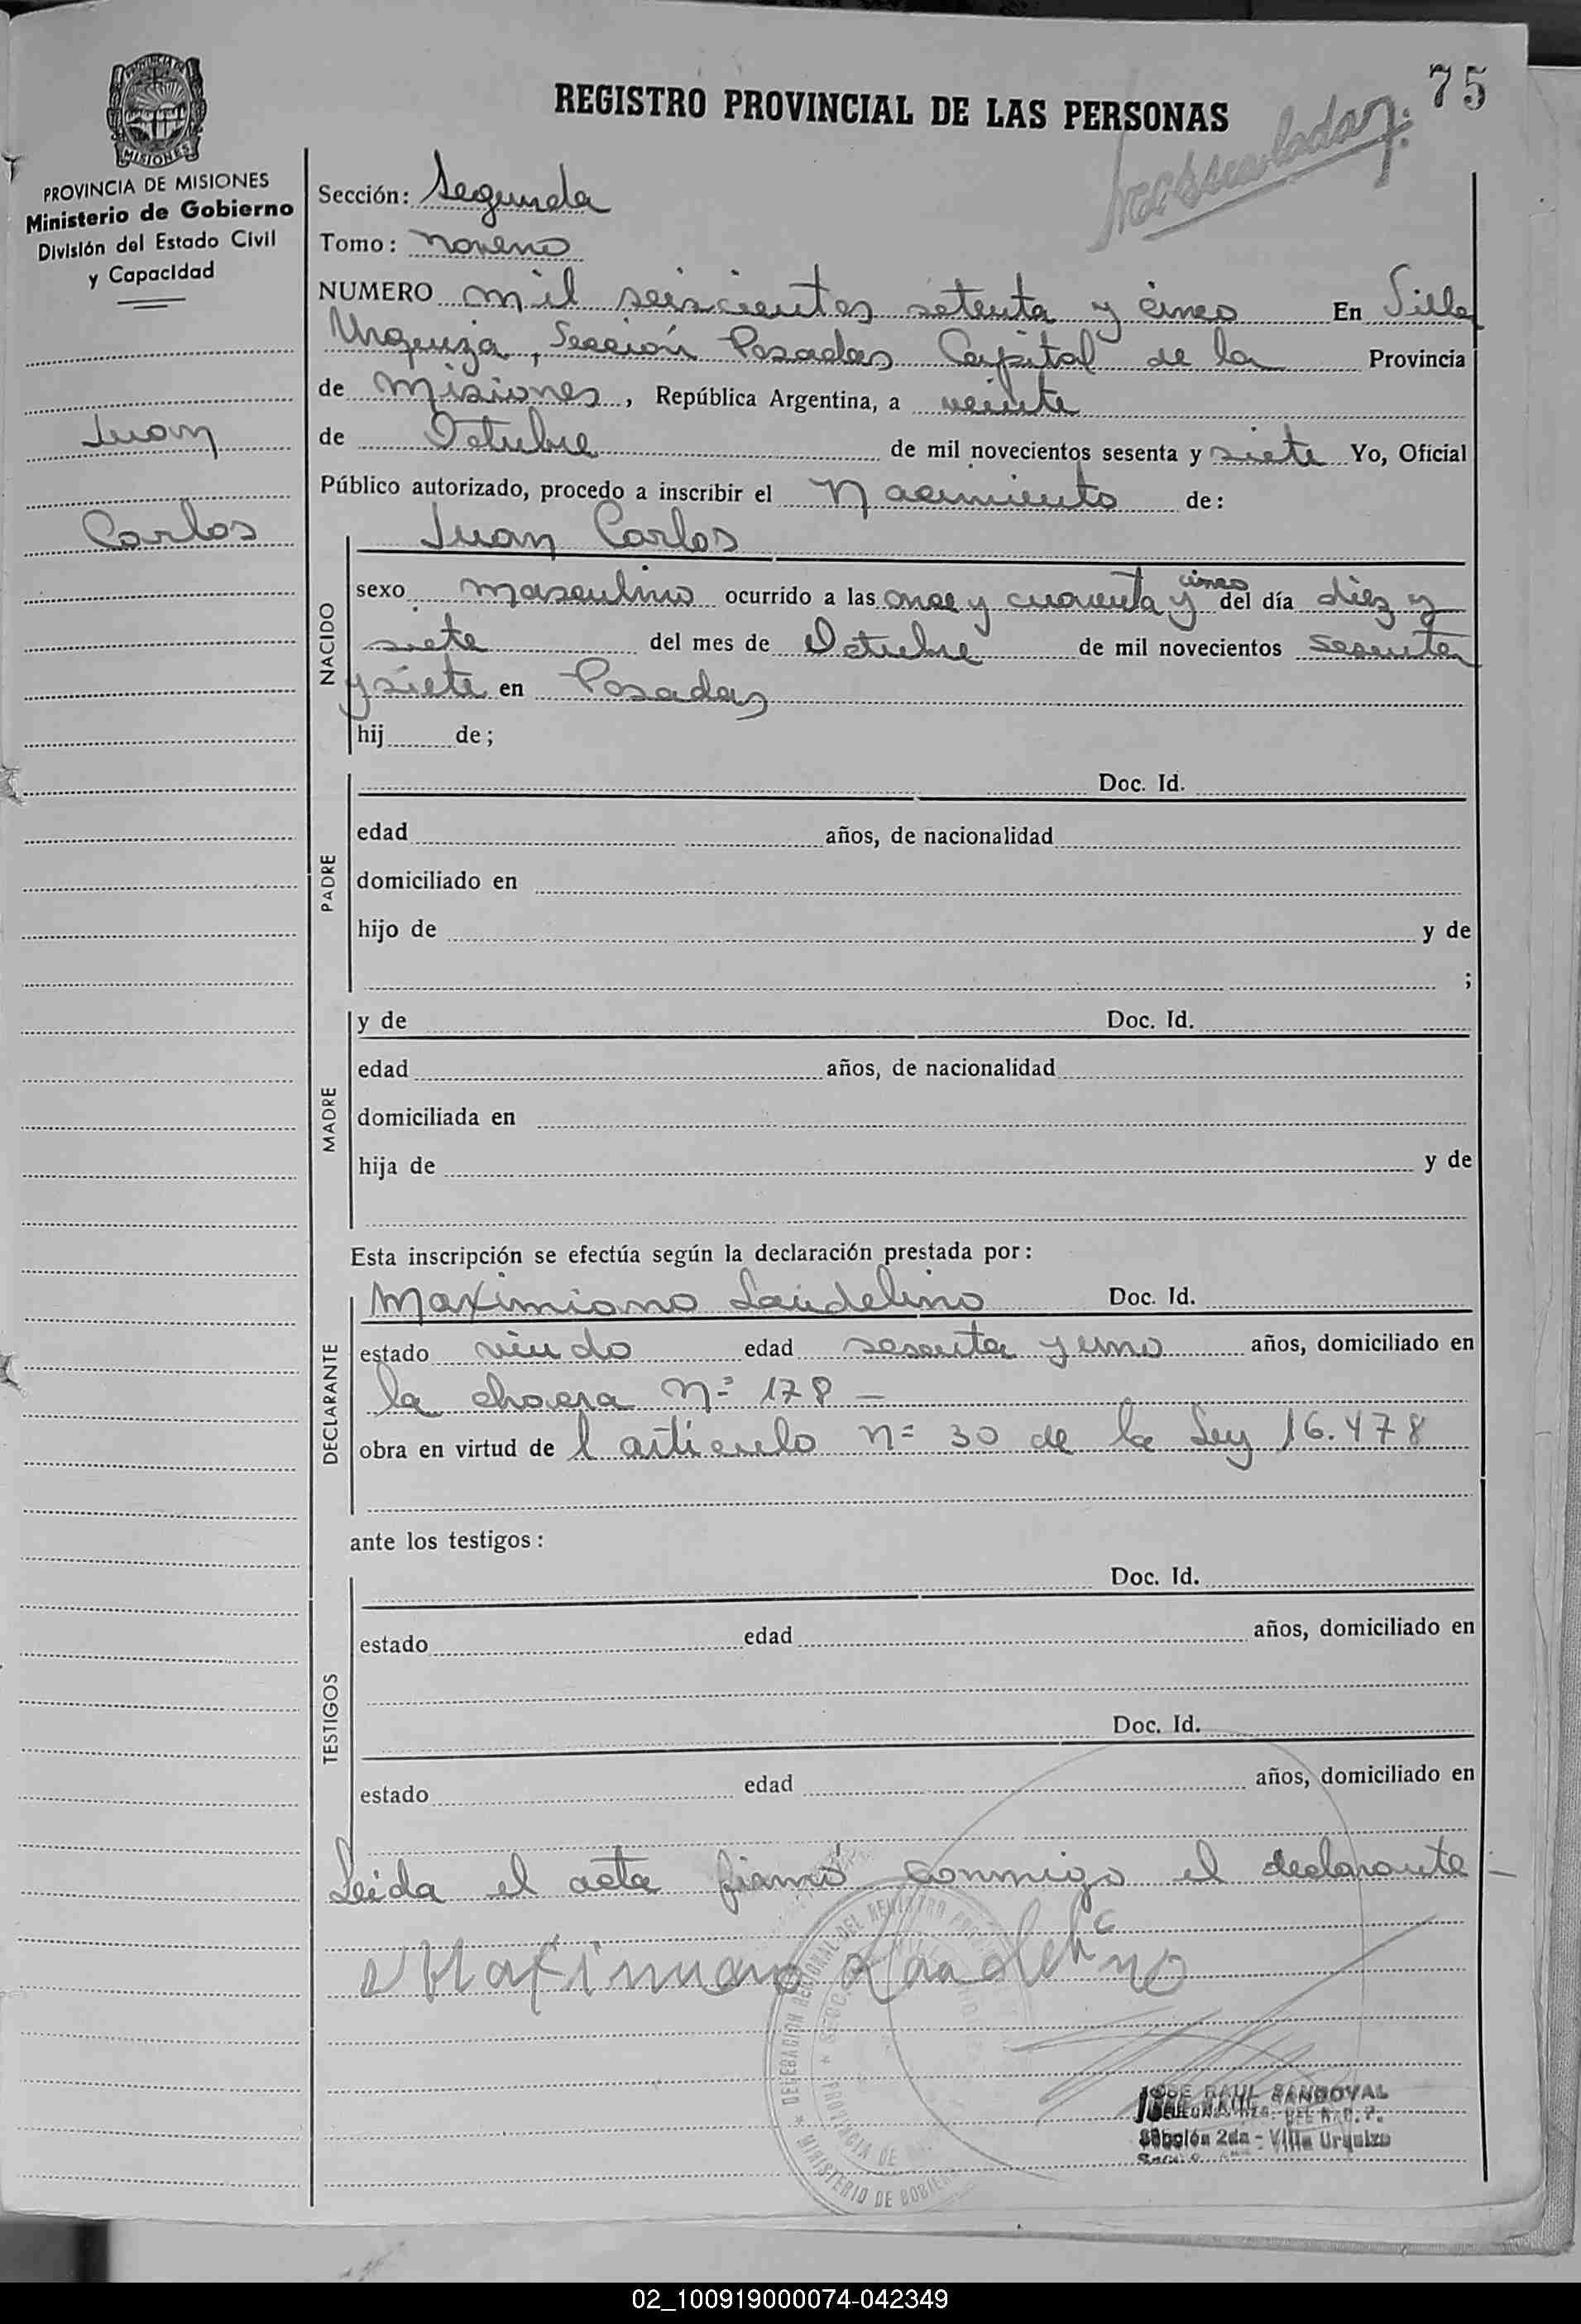 75
REGISTRO PROVINCIAL DE LAS PERSONAS
MISIONES
PROVINCIA DE MISIONES
Ministerio de Gobierno
División del Estado Civil
y Capacidad
Juan
Carlos
Sección: Segunda
Tomo: noveno
NUMERO mil seiscientos setenta y cinco En Villa
Urquiza, Sección Posadas Capital de la Provincia
de Misiones, República Argentina, a veinte
de Octubre de mil novecientos sesenta y siete Yo, Oficial
Público autorizado, procedo a inscribir el Nacimiento de:
Juan Carlos
NACIDO
sexo masculino ocurrido a las once y cuarenta y cinco del día diez y
siete del mes de Octubre de mil novecientos sesenta
y siete en Posadas
hij de;
PADRE
Doc. Id.
edad años, de nacionalidad
domiciliado en
hijo de y de
;
MADRE
y de Doc. Id.
edad años, de nacionalidad
domiciliada en
hija de y de
Esta inscripción se efectúa según la declaración prestada por:
DECLARANTE
Maximiano Laudelino Doc. Id.
estado viudo edad sesenta y uno años, domiciliado en
la chacra Nº 178 —
obra en virtud de l articulo nº 30 de la Ley 16.478
ante los testigos:
TESTIGOS
Doc. Id.
estado edad años, domiciliado en
Doc. Id.
estado edad años, domiciliado en
Leida el acta firmó conmigo el declarante —
Maximiano Laudelino
JOSE RAUL SANDOVAL
2da - Villa Urquiza
02_100919000074-042349